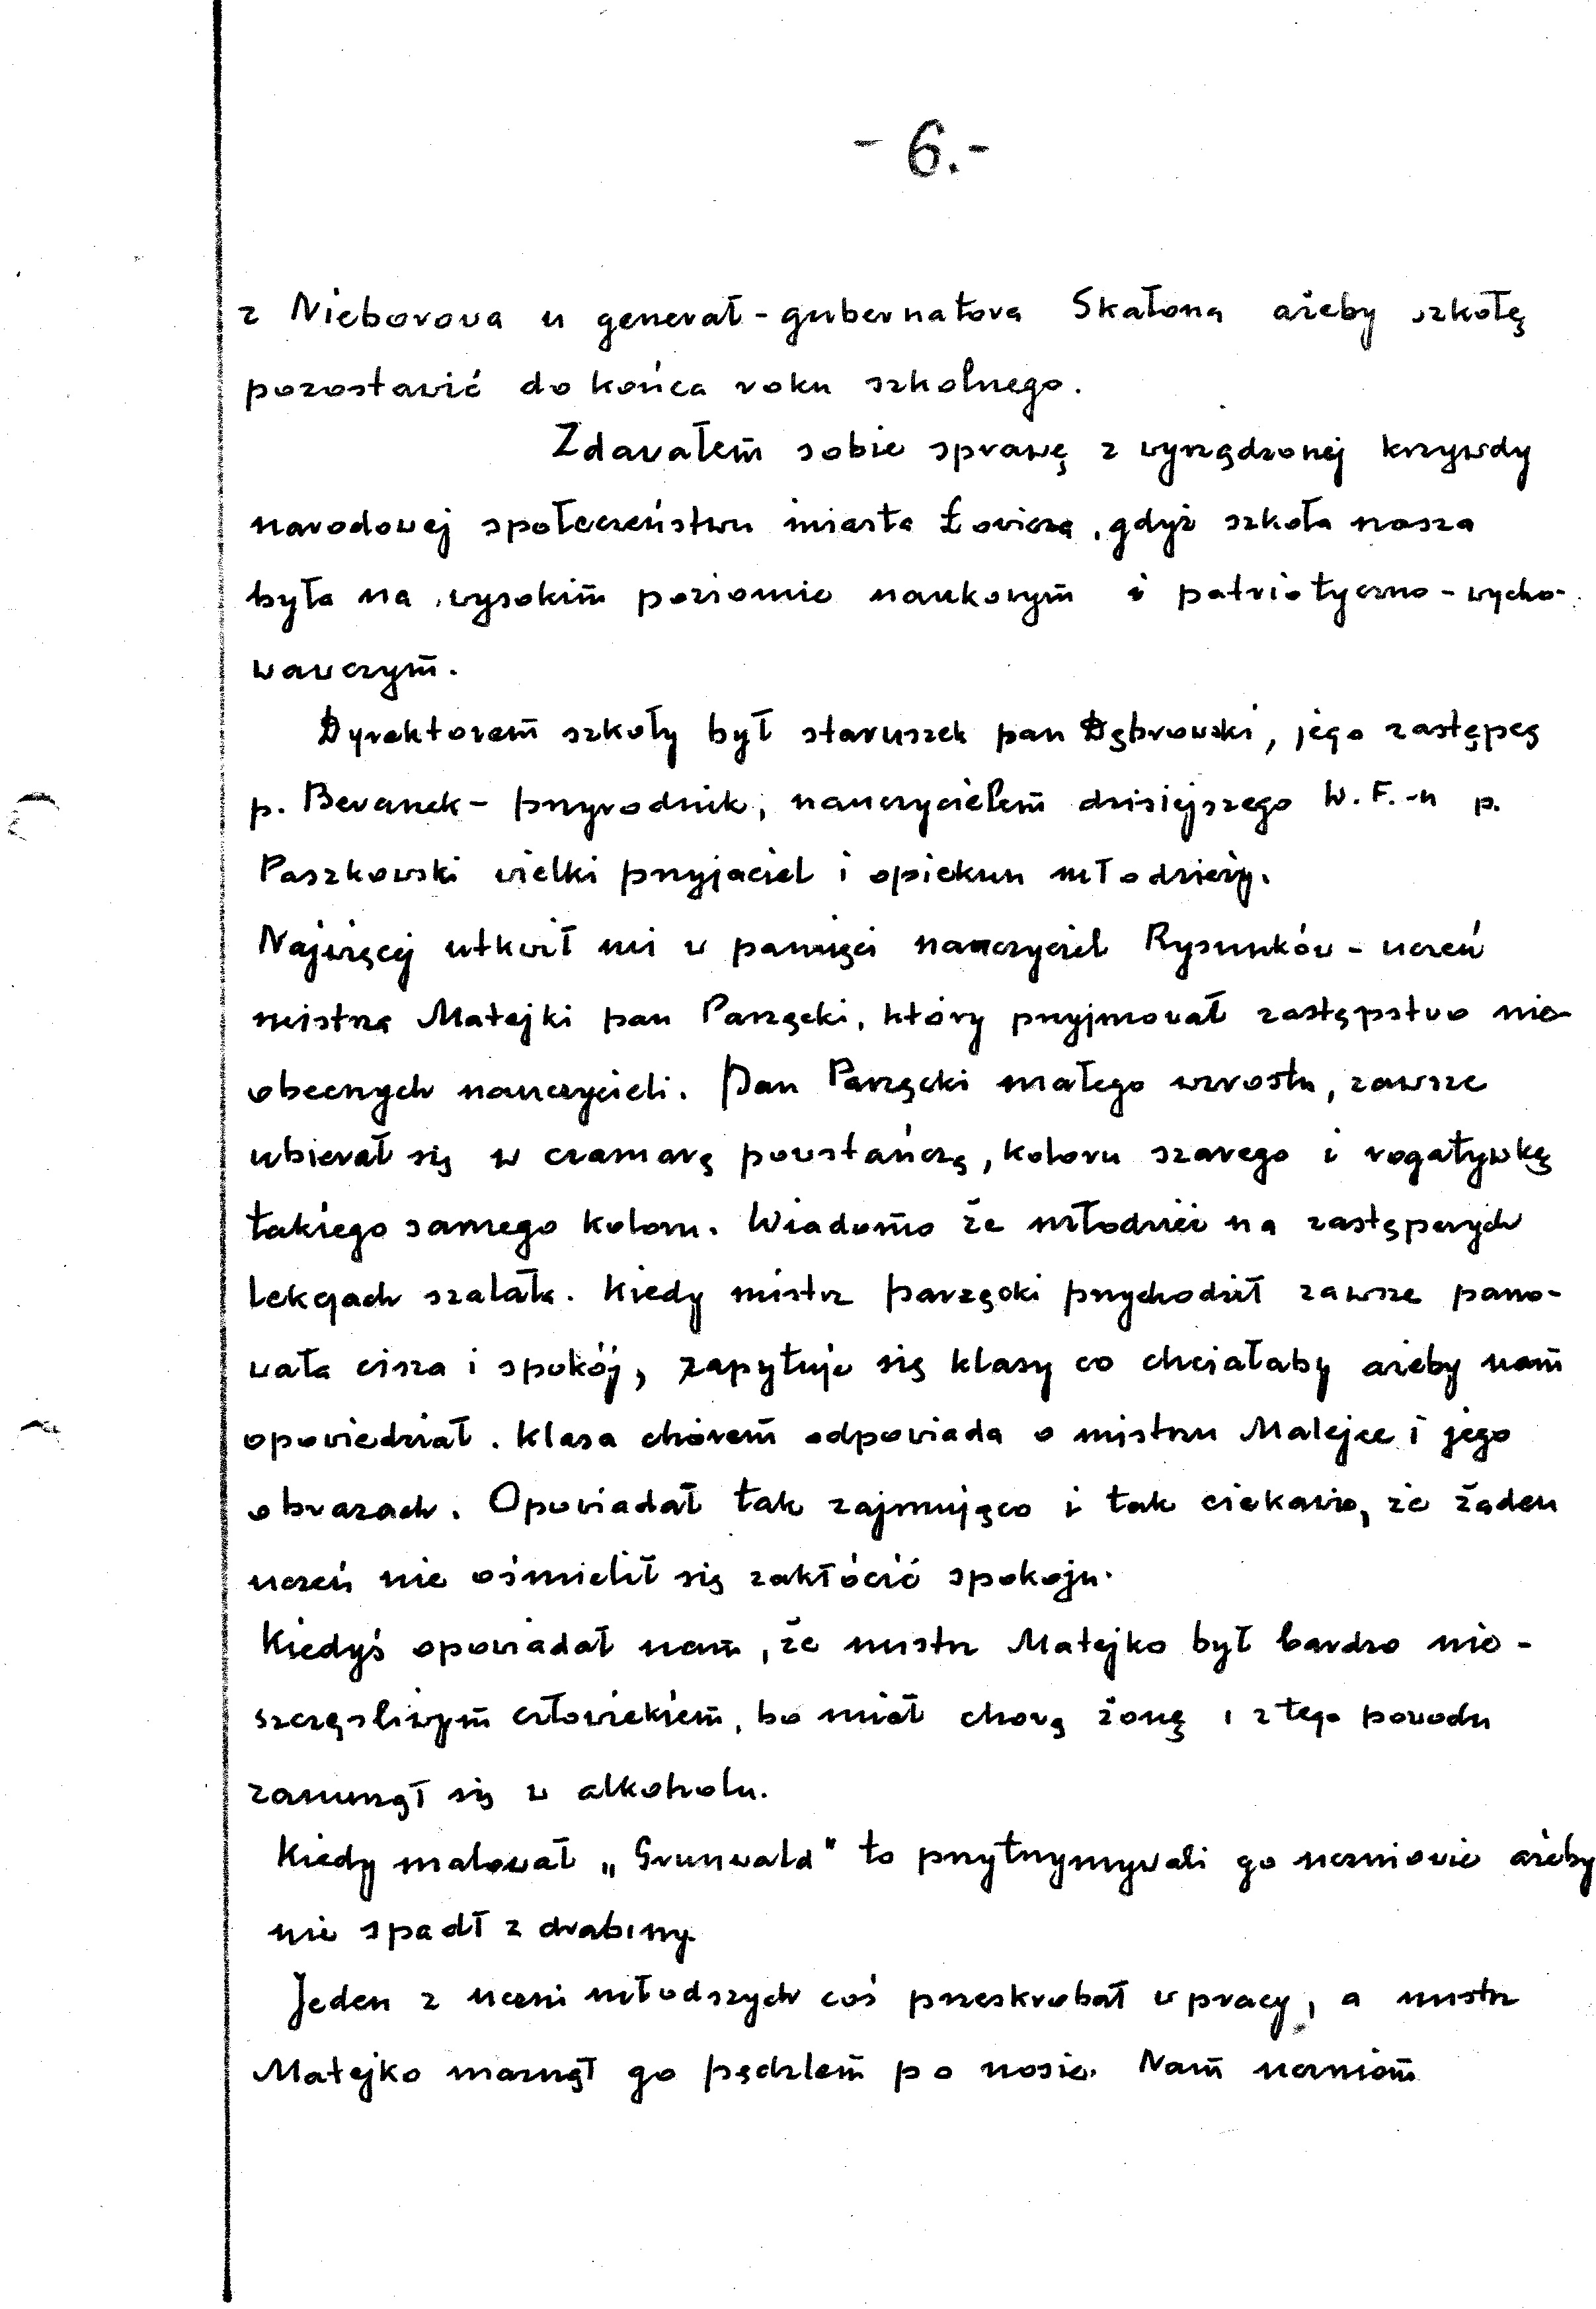 - 6. -
z Nieborowa u generał-gubernatora Skałona ażeby szkołę
pozostawić do końca roku szkolnego.
Zdawałem sobie sprawę z wyrządzonej krzywdy
narodowej społeczeństwu miasta Łowicza, gdyż szkoła nasza
była na wysokim poziomie naukowym i patriotyczno-wycho-
wawczym.
Dyrektorem szkoły był staruszek pan Dąbrowski, jego zastępcą
p. Beranek - przyrodnik, nauczycielem dzisiejszego W.F.-u p.
Paszkowski wielki przyjaciel i opiekun młodzieży.
Najwięcej utkwił mi w pamięci nauczyciel Rysunków - uczeń
mistrza Matejki pan Parzącki, który przyjmował zastępstwo nie-
obecnych nauczycieli. Pan Parzącki małego wzrostu, zawsze
ubierał się w czamarę powstańczą, koloru szarego i rogatywkę
takiego samego koloru. Wiadomo że młodzież na zastępczych
lekcjach szalała. Kiedy mistrz Parzącki przychodził zawsze pano-
wała cisza i spokój, zapytuje się klasy co chciałaby ażeby nam
opowiedział. Klasa chórem odpowiada o mistrzu Matejce i jego
obrazach. Opowiadał tak zajmująco i tak ciekawie, że żaden
uczeń nie ośmielił się zakłócić spokoju.
Kiedyś opowiadał nam, że mistrz Matejko był bardzo nie-
szczęsliwym człowiekiem, bo miał chorą żonę i z tego powodu
zanurzył się w alkoholu.
Kiedy malował „Grunwald" to przytrzymywali go uczniowie ażeby
nie spadł z drabiny.
Jeden z uczni młodszych coś przeskrobał w pracy, a mistrz
Matejko maznął go pędzlem po nosie. Nam uczniom